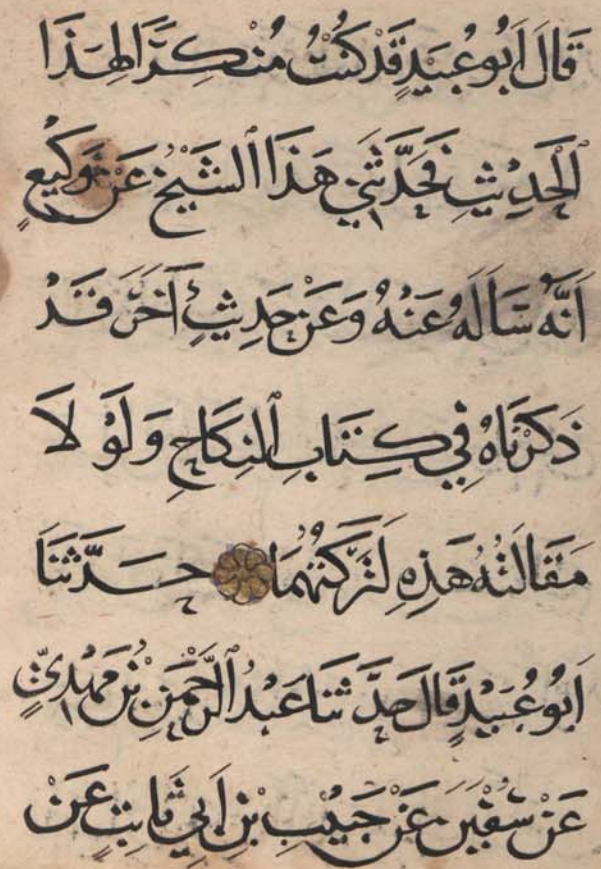 قَالَ اَبُو عُبَيْدٍ قَدْ كُنْتُ مُنْكِرًا لِهَذَا
الْحَدِيْثِ فَحَدَّثَنِي هَذَا الشَّيْخُ عَنْ وَكِيْعٍ
اَنَّهُ سَاَلَهُ عَنْهُ وَعَنْ حَدِيْثٍ آخَرَ قَدْ
ذَكَرْنَاهُ فِي كِتَابِ النِكَاحِ وَلَوْ لَا
مَقَالَتُهُ هَذِهِ لَتَرَكْتُهُمَا حَدَّثَنَا
اَبُو عُبَيْدٍ قَالَ حَدَّثَنَا عَبْدُ الرَّحْمَنِ بْنُ مَهْدِيٍّ
عَنْ سُفْيَنَ عَنْ حَبِيْبِ بْنِ اَبِي ثَابِتٍ عَنْ